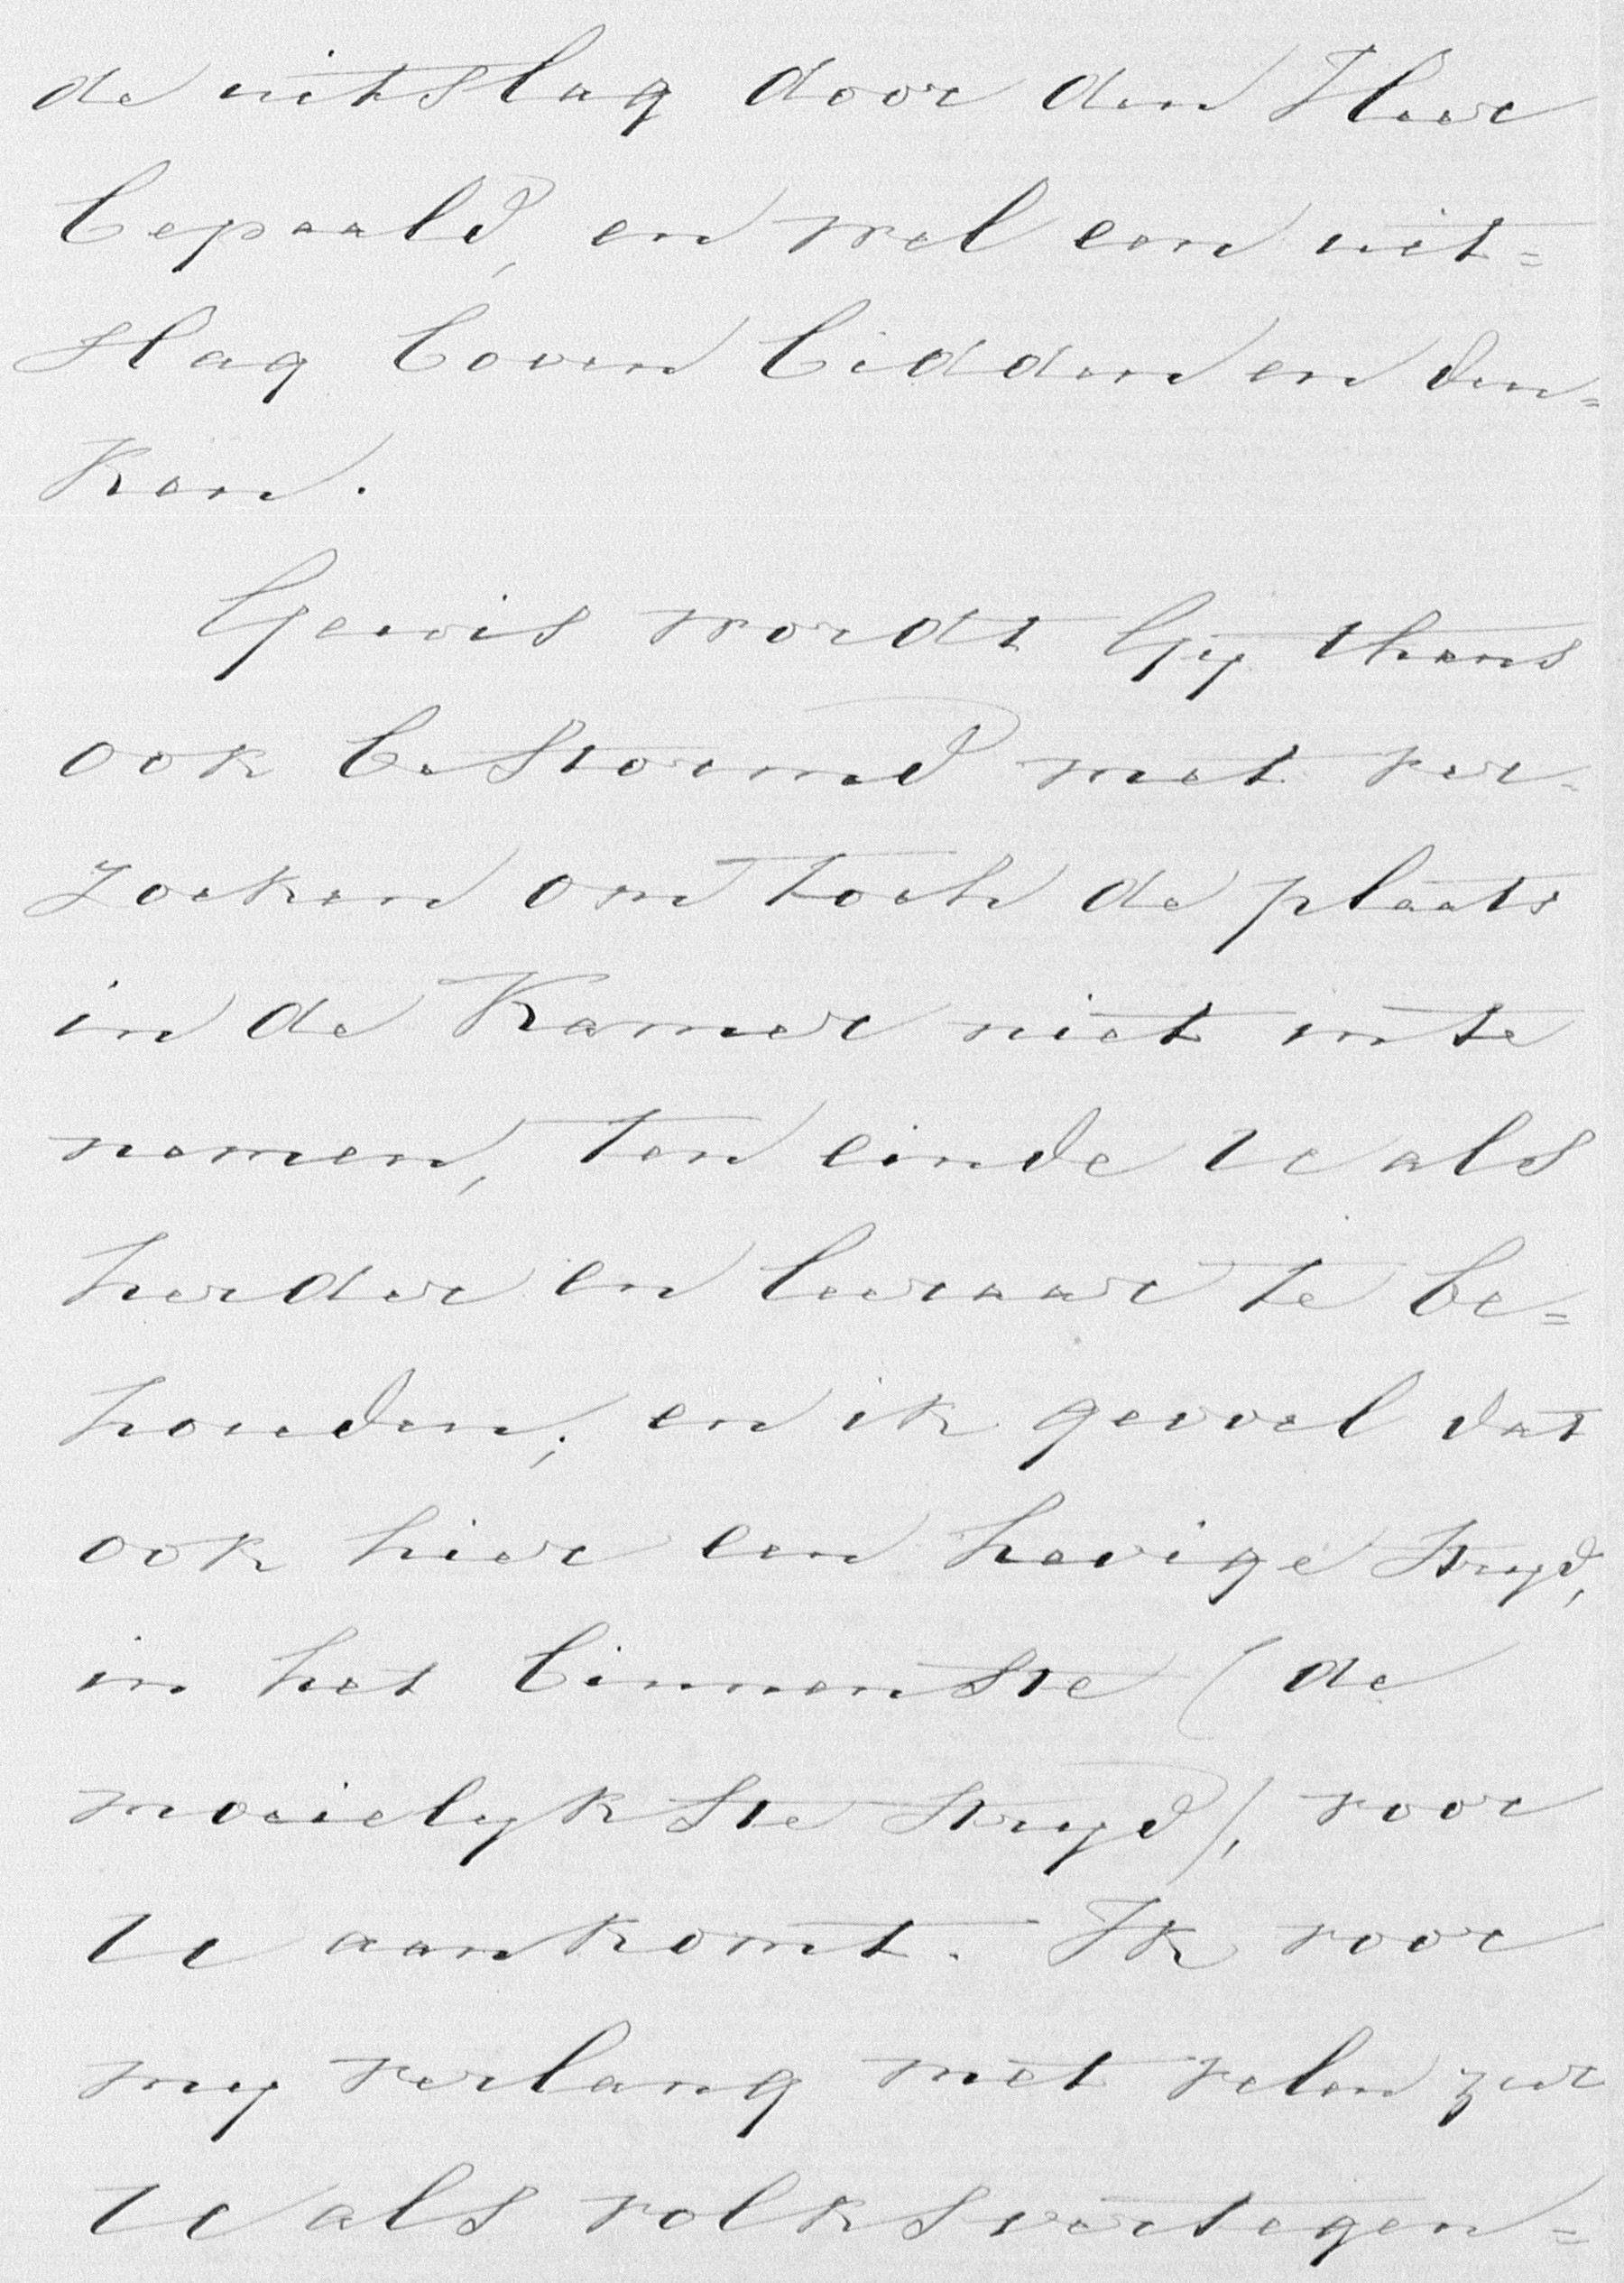 de uitslag door den Heer
bepaald, en wel een uit=
slag boven bidden en den=
ken.
Gewis wordt Gy thans
ook bestormd met ver=
zoeken om toch de plaats
in de Kamer niet in te
nemen, ten einde U als
herder en leeraar te be=
houden; en ik gevoel dat
ook hier een hevige stryd,
in het binnenste (de
moeielykste stryd), voor
U aankomt. Ik voor
my verlang met velen zeer
U als volksvertegen=